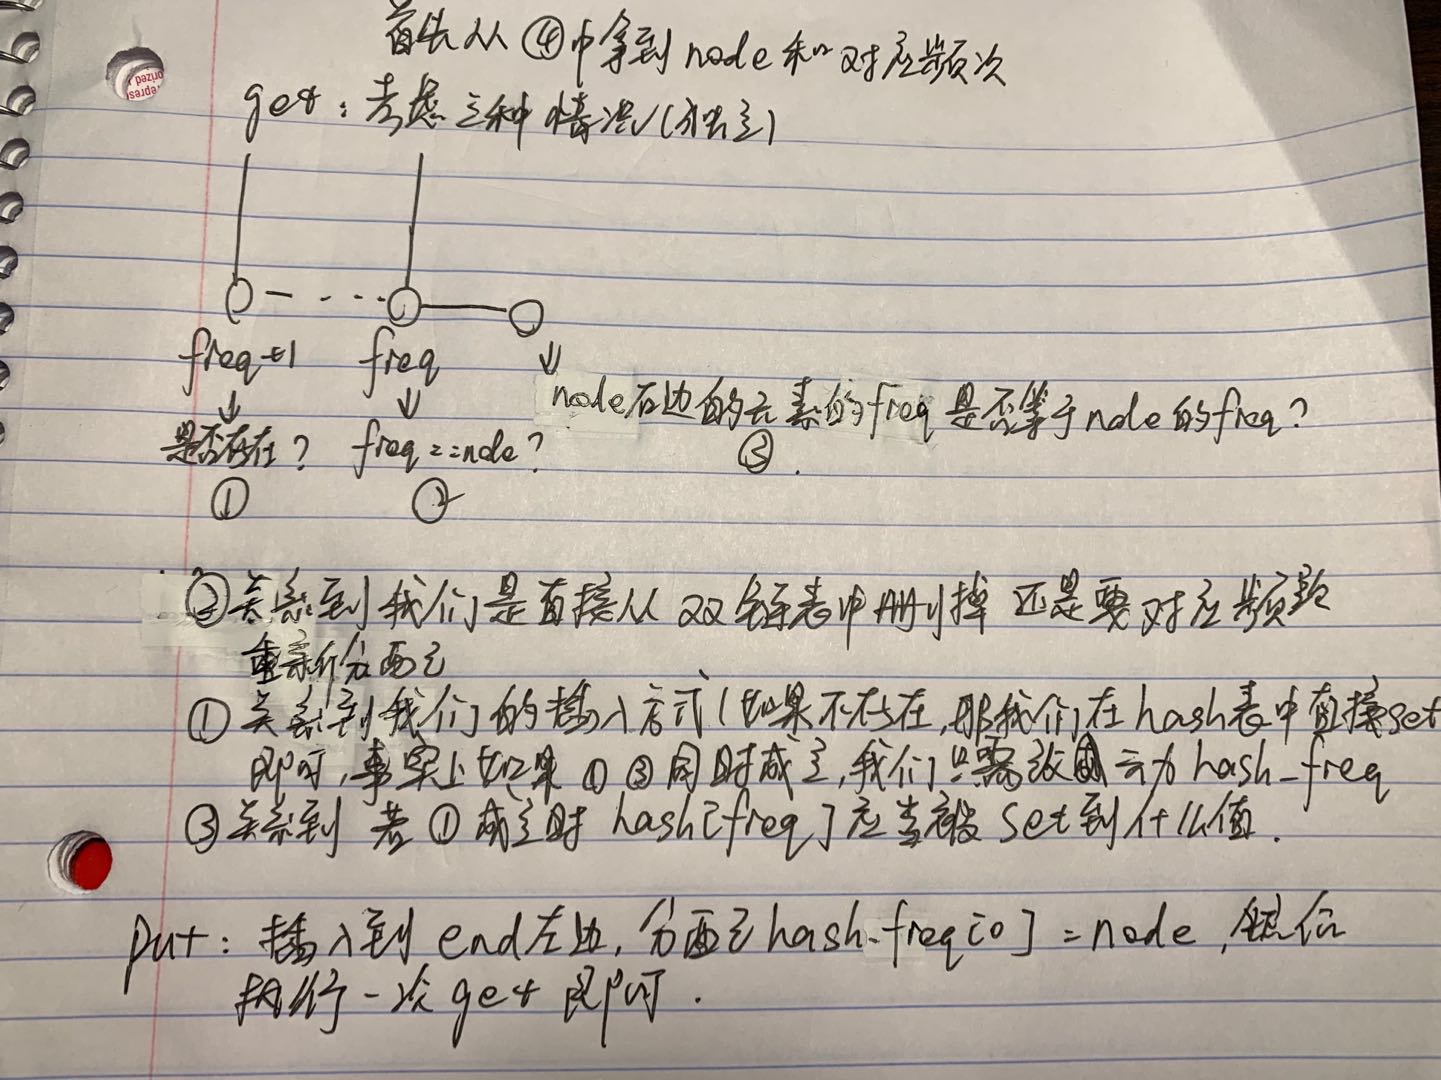 首先从④中拿到node和对应频次
get：考虑三种情况(独立)
freq+1 freq
node右边的元素的freq是否等于node的freq？
是否存在？ freq==node？ ③
① ②
②关系到我们是直接从双链表中删掉还是要对应频次
重新分配它
①关系到我们的插入方式(如果不存在,那我们在hash表中直接set
即可,事实上如果①③同时成立,我们只需改动hash_freq
③关系到若①成立时hash[freq]应当被set到什么值.
put：插入到end左边,分配它hash_freq[0]=node,然后
执行一次get即可.